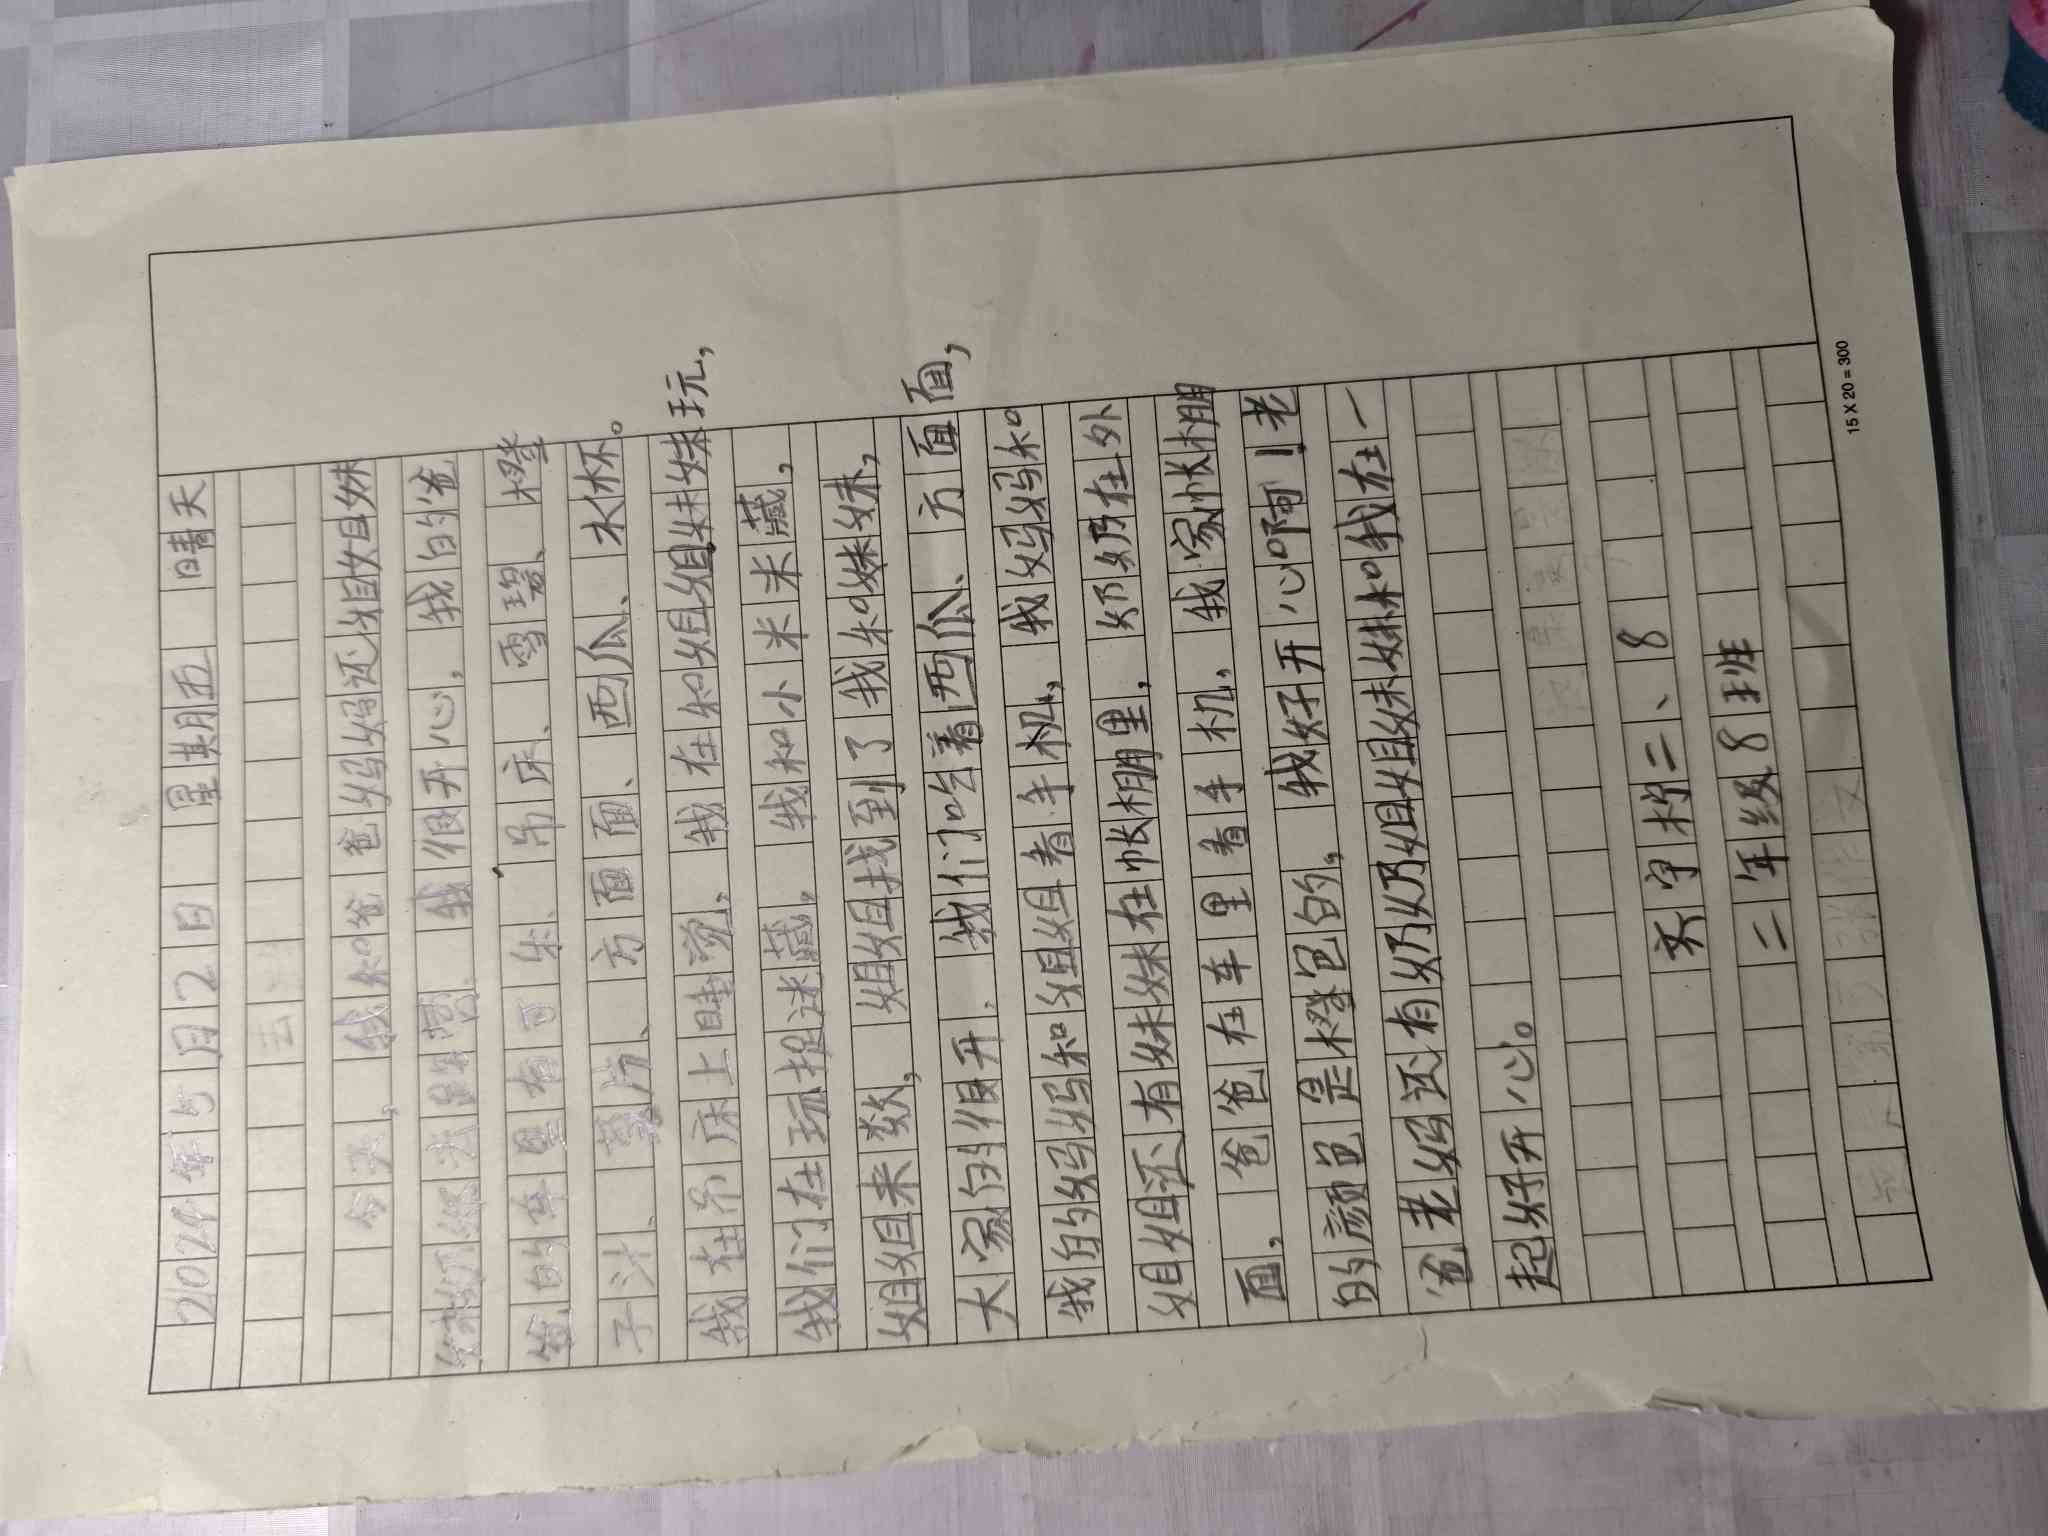 2024年5月2日 星期五 晴天
今天,我和爸爸妈妈还姐姐妹
我很开心,我的爸
爸的车里有可乐、吊床、雪碧、橙
子汁、薯片、方面面、西瓜、水杯。
我在吊床上睡觉,我在和姐姐妹妹玩,
我们在玩捉迷藏。我和小米米藏,
姐姐来数,姐姐找到了我和妹妹,
大家的很开。我们吃着西瓜、方面面,
我的妈妈和姐姐看手机,我妈妈和
姐姐还有妹妹在帐棚里,奶奶在外
面,爸爸在车里看手机。我家帐棚
的颜色是橙色的,我好开心啊!老
爸老妈还有奶奶姐姐妹妹和我在一
起好开心。
二、8
二年级8班
15 X 20 = 300